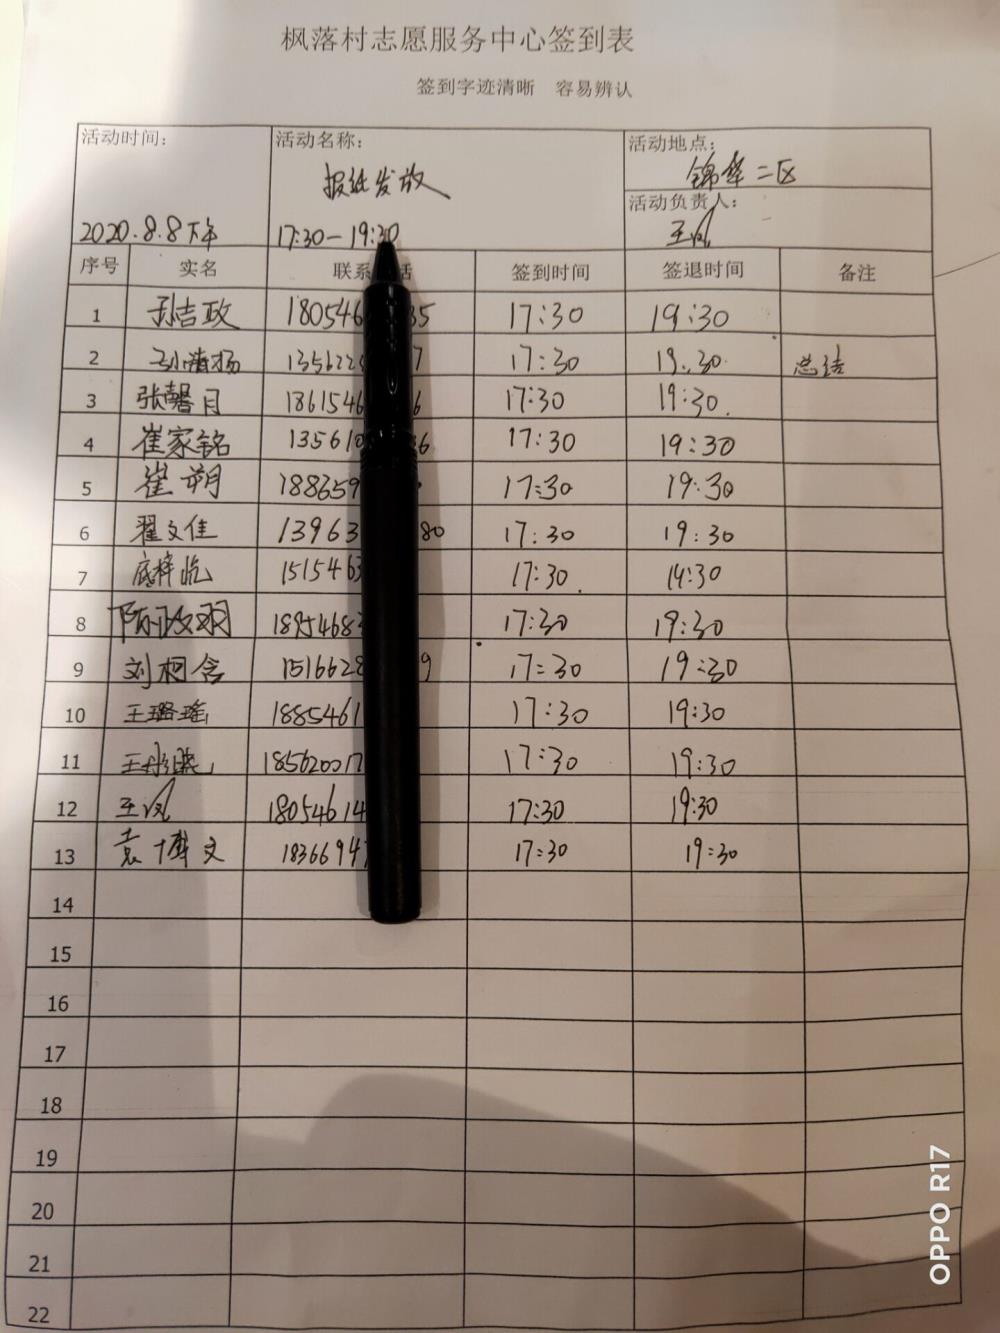 枫落村志愿服务中心签到表
签到字迹清晰 容易辨认
活动时间: 活动名称: 活动地点:
报纸发放 锦华二区
活动负责人:
2020.8.8下午 17:30-19:30 王凤
序号 实名 联系 话 签到时间 签退时间 备注
1 孙吉政 180546 35 17:30 19:30
2 清扬 1356228 7 17:30 19:30 总结
3 张馨月 1861546 6 17:30 19:30
4 崔家铭 135610 36 17:30 19:30
5 崔朔 188659 17:30 19:30
6 翟文佳 13963 80 17:30 19:30
7 151546 17:30 19:30
8 陈 羽 1895468 17:30 19:30
9 刘柯含 1516628 9 17:30 19:30
10 王璐瑶 1885461 17:30 19:30
11 王彤晓 185620017 17:30 19:30
12 王凤 18054614 17:30 19:30
13 袁博文 1836694 17:30 19:30
14
15
16
17
18
19
20
21
22
OPPO R17